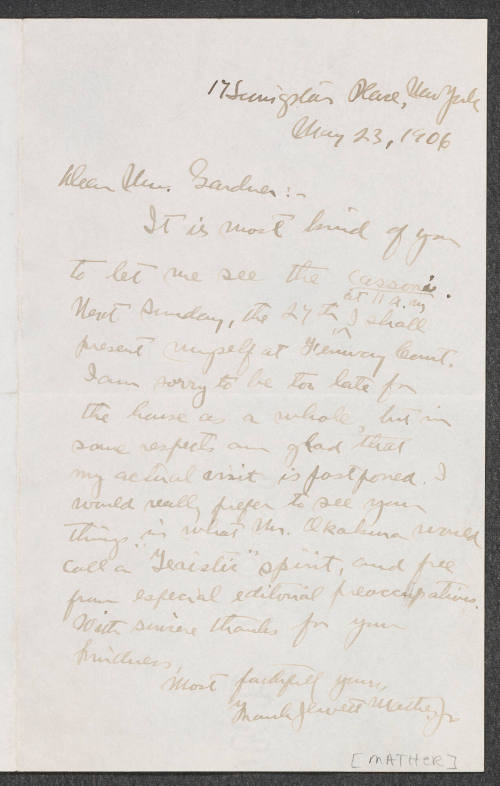 17 Livingston Place, New York
May 23, 1906
Dear Mrs. Gardner:-
It is most kind of you
to let me see the cassoni.
at 11 a.m.
Next Sunday, the 27th, I shall
present myself at Fenway Court.
I am sorry to be too late for
the house as a whole, but in
some respects am glad that
my actual visit is postponed. I
would really prefer to see your
things in what Mr. Okakura would
call a "Teaistic" spirit, and free
from especial editorial preoccupations.
With sincere thanks for your
kindness,
Most faithfully yours,
Frank Jewett Mather, Jr
[MATHER]